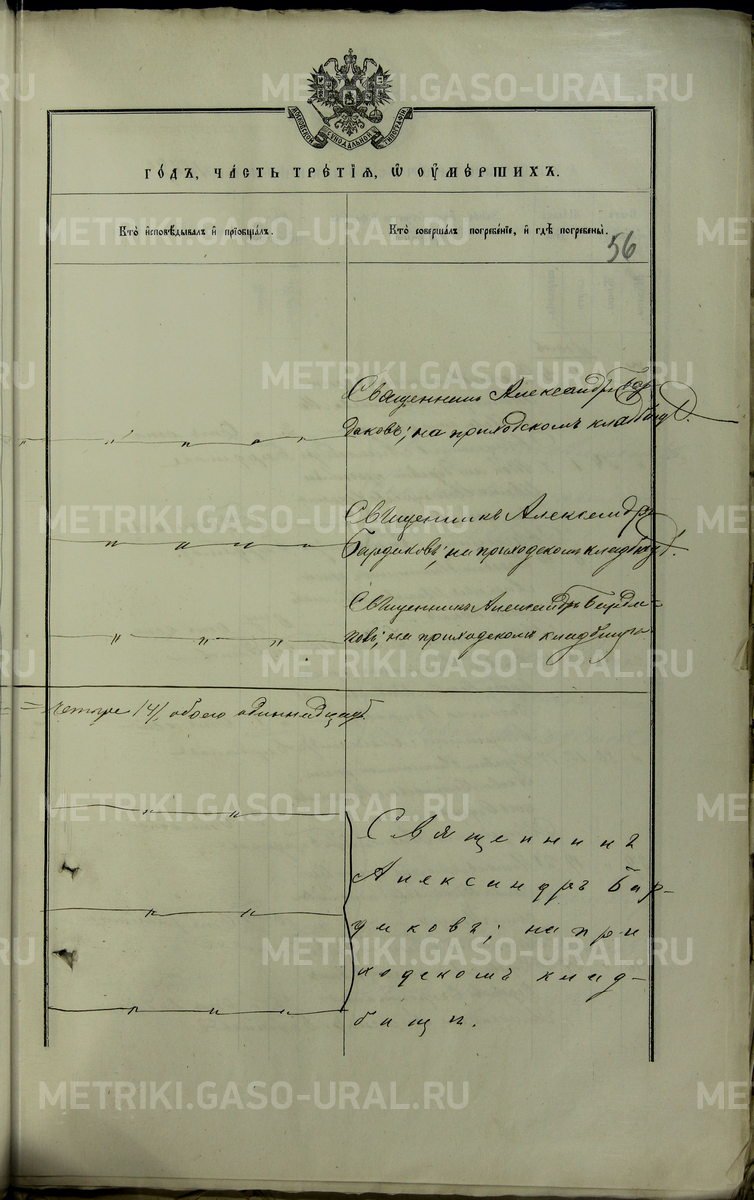 METRIKI.GASO-URAL.RU
МОСКОВСКОЙ СѴНОДАЛЬНОЙ ТИПОГРАФІИ
ГО́ДЪ, ЧА́СТЬ ТРЕ́ТІѦ, Ѡ ОУ҆МЕ́РШИХЪ.
Кто̀ и҆сповѣ́дывалъ и҆ прїѡбща́лъ.
Кто̀ соверша́лъ погребе́нїе, и҆ гдѣ̀ погребены̀.
56
Священникъ Александръ Бар-
даковъ; на приходскомъ кладбищѣ.
" " " "
Священникъ Александръ
Бардаковъ; на приходскомъ кладбищѣ.
" " "
Священникъ Александръ Барда-
ковъ; на приходскомъ кладбищѣ.
" " "
четыре /4/, обоего одиннадцать
" "
Священникъ
Александръ Бар-
даковъ; на при
ходскомъ клад-
бищѣ.
" "
" " "